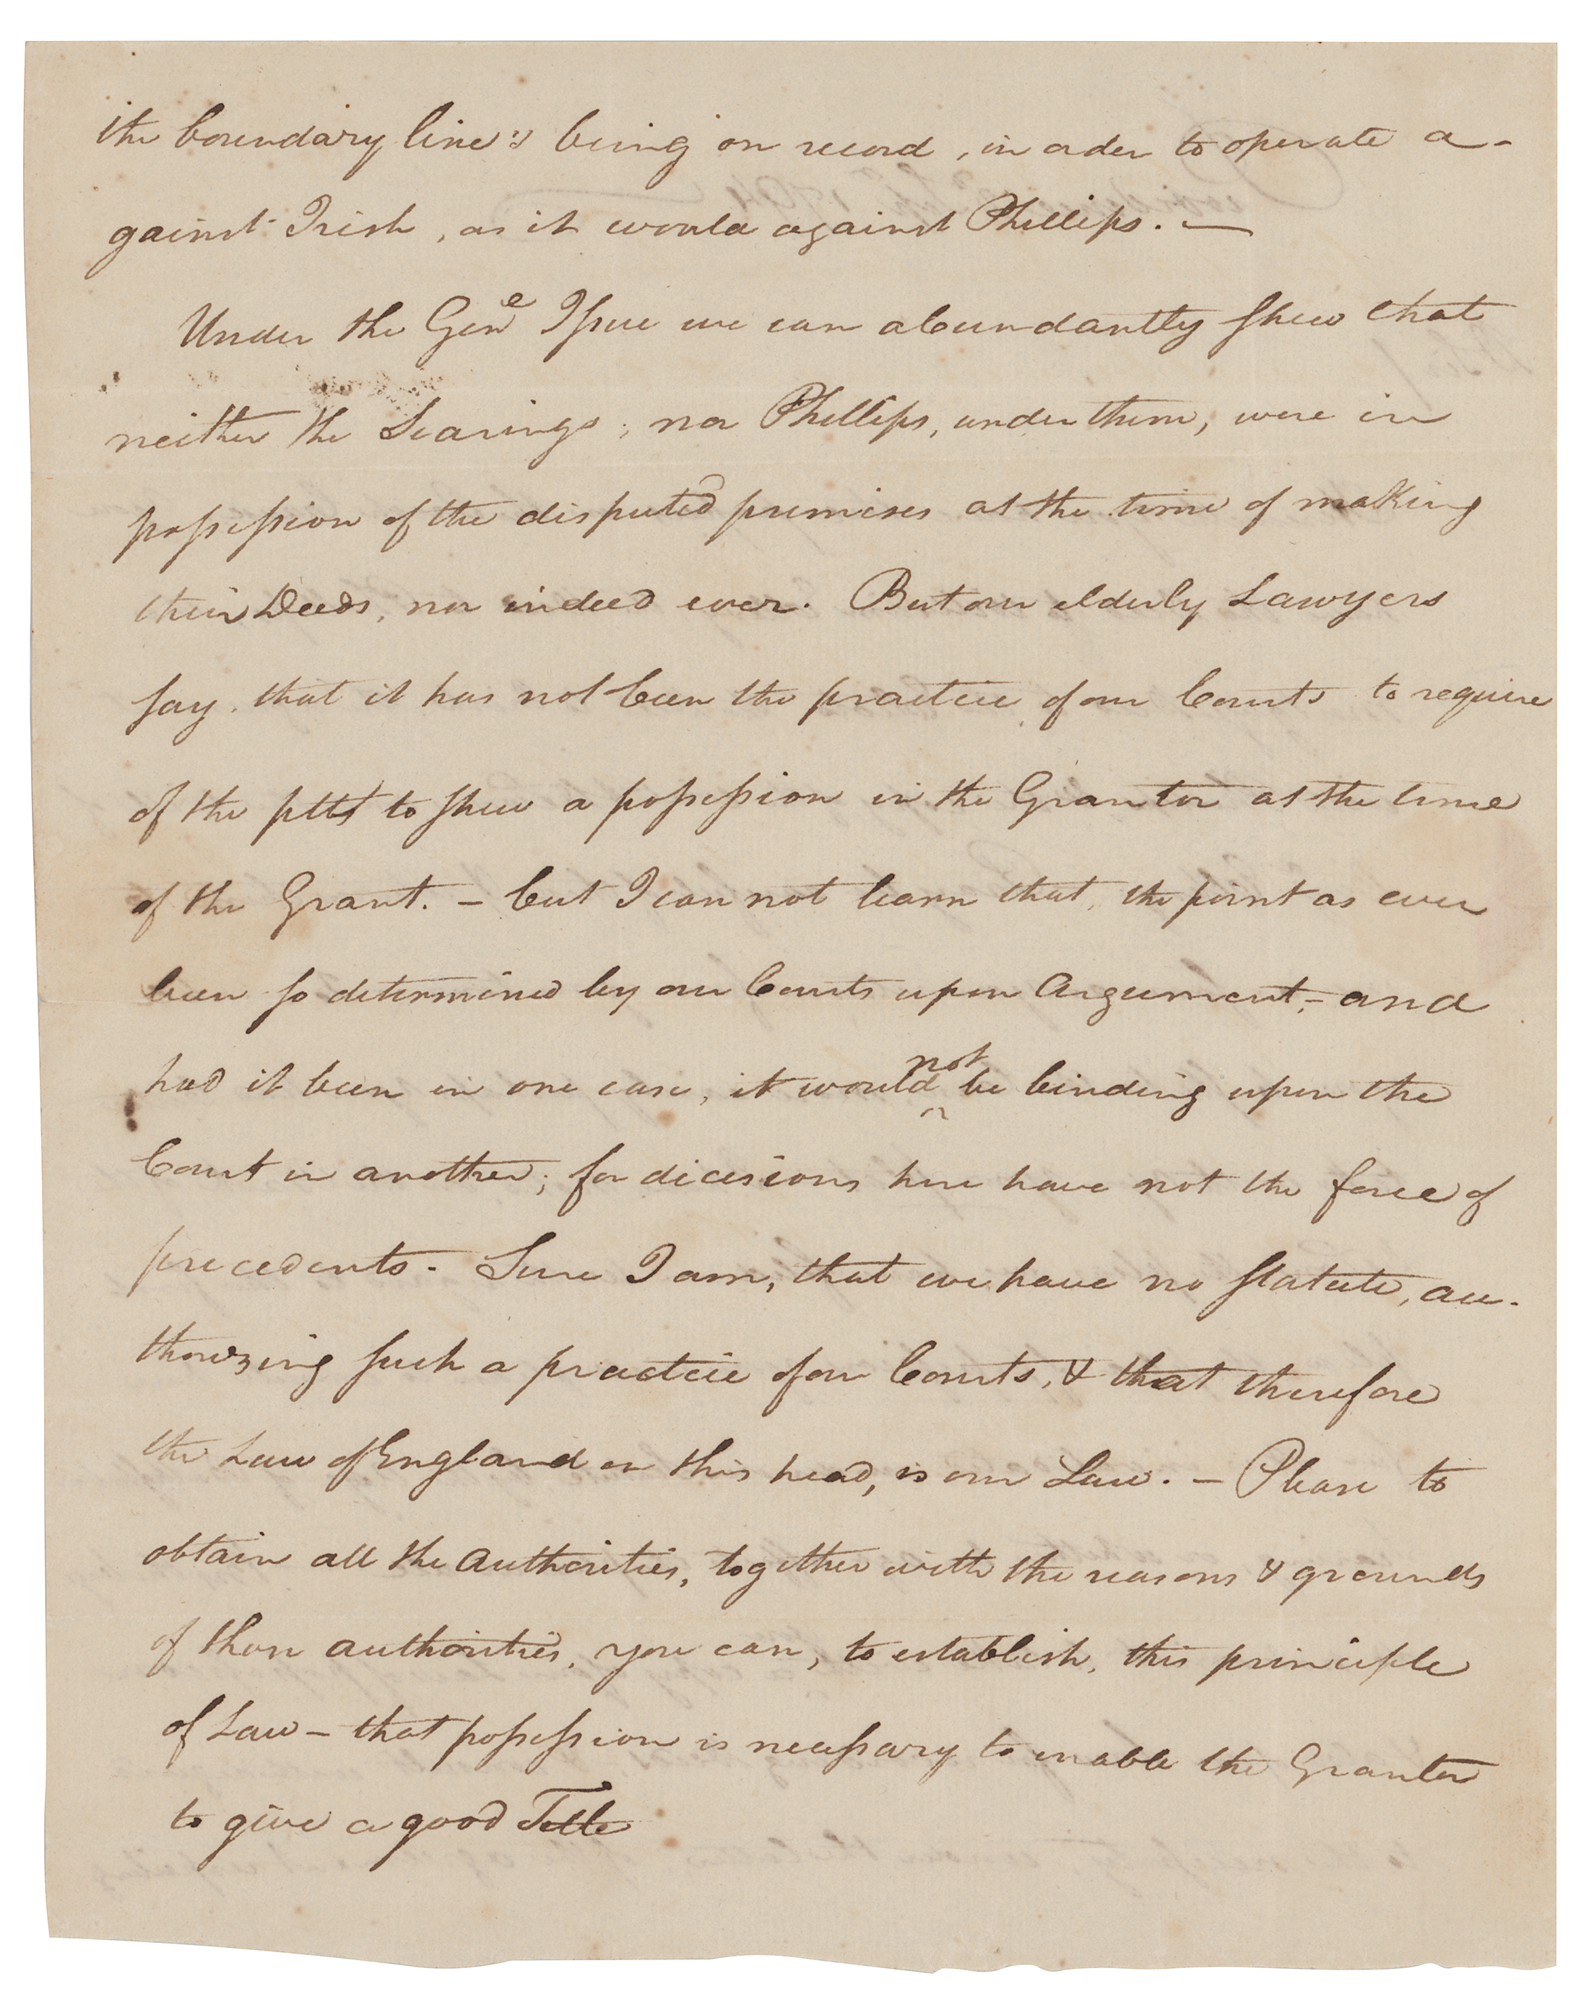 the boundary line's being on record, in order to operate a-
gainst Irish, as it would against Phillips. —
Under the Genˡ Issue we can abundantly shew that
neither the Searings, nor Phillips, under them, were in
possession of the disputed premises at the time of making
their Deeds, nor indeed ever. But our elderly Lawyers
say, that it has not been the practice of our Courts to require
of the pltf to shew a possession in the Grantor at the time
of the Grant. – but I can not learn that, the point as ever
been so determined by our Courts upon Argument, – and
had it been in one case, it would not be binding upon the
Court in another; for dicisions here have not the force of
precedents. Sure I am, that we have no statute, au-
thorizing such a practice of our Courts, & that therefore
the Law of England on this head, is our Law. – Please to
obtain all the authorities, together with the reasons & grounds
of those authorities, you can, to establish, this principle
of Law – that possession is necessary to enable the Grantor
to give a good Title